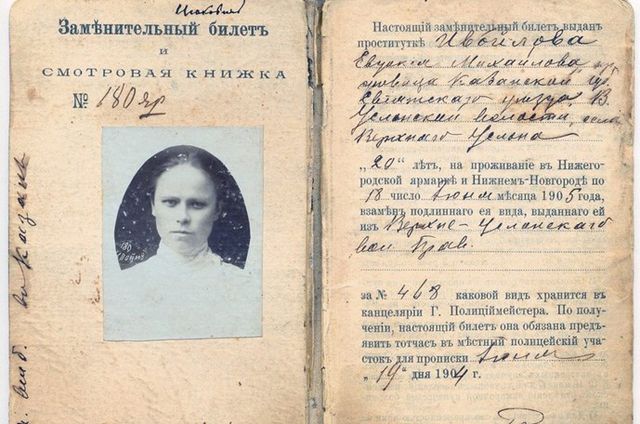 Замѣнительный билетъ
и
СМОТРОВАЯ КНИЖКА
№ 180 яр
въ Казани
Настоящій замѣнительный билетъ выданъ
проституткѣ Ивойлова
Евдокія Михайлова
Казанской губ.
Свіяжскаго уѣзда, В.
Услонской волости, села
Верхняго Услона
„20" лѣтъ, на проживаніе въ Нижего-
родской ярмаркѣ и Нижнемъ-Новгородѣ по
18 число Іюня мѣсяца 1905 года,
взамѣнъ подлиннаго ея вида, выданнаго ей
изъ Верхне-Услонскаго
вол Прав
за № 468 каковой видъ хранится въ
канцеляріи Г. Полиціймейстера. По полу-
ченіи, настоящій билетъ она обязана предъ-
явить тотчасъ въ мѣстный полицейскій уча-
стокъ для прописки Іюня
„19" дня 1904 г.